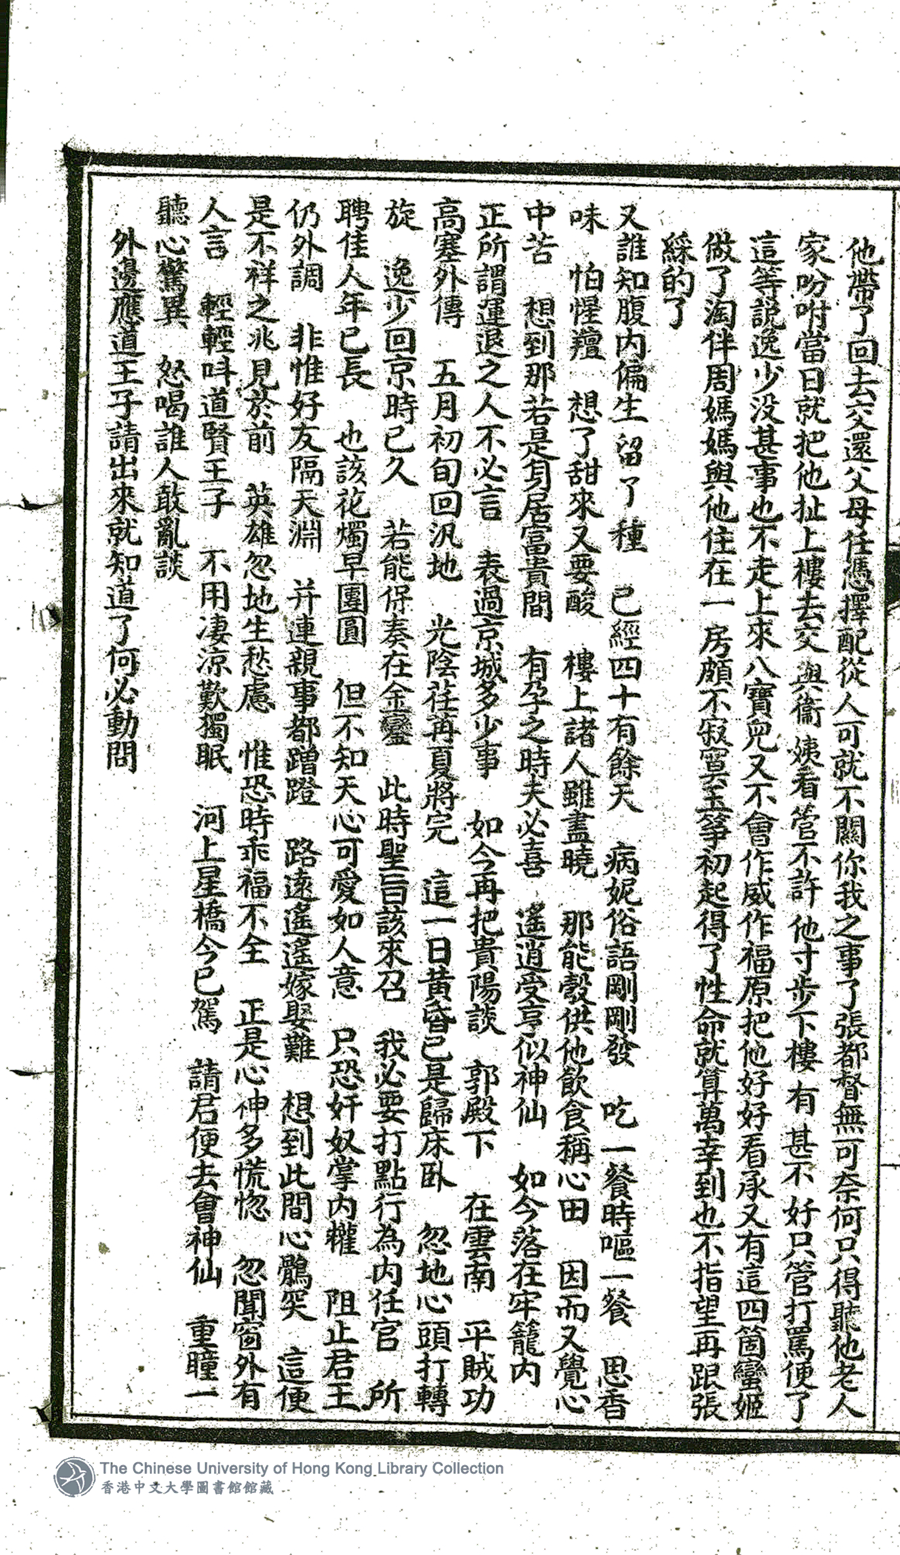 他帶了回去交還父母任憑擇配從人可就不關你我之事了張都督無可奈何只得聽他老人
家吩咐當日就把他扯上樓去交與衞姨看管不許他寸步下樓有甚不好只管打罵便了
這等説逸少没甚事也不走上來八寶兒又不會作威作福原把他好好看承又有這四箇蠻姬
做了淘伴周媽媽與他住在一房頗不寂寞玉箏初起得了性命就算萬幸到也不指望再跟張
綵的了
又誰知腹内偏生留了種　已經四十有餘天　病妮俗語剛剛發　吃一餐時嘔一餐　思香
味　怕惺羶　想了甜來又要酸　樓上諸人雖盡曉　那能彀供他飲食稱心田　因而又覺心
中苦　想到那若是身居富貴間　有孕之時夫必喜　遙逍受享似神仙　如今落在牢籠内
正所謂運退之人不必言　表過京城多少事　如今再把貴陽談　郭殿下　在雲南　平賊功
高塞外傳　五月初旬回汛地　光陰荏苒夏將完　這一日黄昏已是歸床卧　忽地心頭打轉
旋　逸少回京時已久　若能保奏在金鑾　此時聖旨該來召　我必要打點行為内任官　所
聘佳人年已長　也該花燭早團圓　但不知天心可愛如人意　只恐奸奴掌内權　阻止君王
仍外調　非惟好友隔天淵　并連親事都蹭蹬　路遠遙遙嫁娶難　想到此間心鶻突　這便
是不祥之兆見於前　英雄忽地生愁慮　惟恐時乖福不全　正是心神多慌惚　忽聞窗外有
人言　輕輕呌道賢王子　不用凄涼歎獨眠　河上星橋今已駕　請君便去會神仙　重瞳一
聽心驚異　怒喝誰人敢亂談
外邊應道王子請出來就知道了何必動問
The Chinese University of Hong Kong Library Collection
香港中文大學圖書館館藏